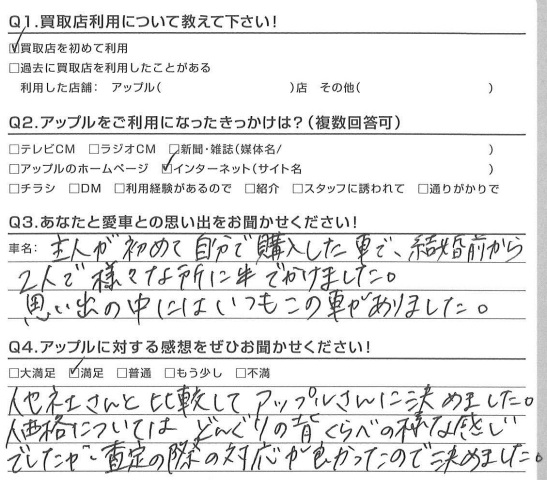 Q1.買取店利用について教えて下さい!
☑買取店を初めて利用
□過去に買取店を利用したことがある
利用した店舗: アップル( )店 その他( )
Q2.アップルをご利用になったきっかけは?(複数回答可)
□テレビCM □ラジオCM □新聞・雑誌(媒体名/ )
□アップルのホームページ ☑インターネット(サイト名 )
□チラシ □DM □利用経験があるので □紹介 □スタッフに誘われて □通りがかりで
Q3.あなたと愛車との思い出をお聞かせください!
車名: 主人が初めて自分で購入した車で、結婚前から
2人で様々な所に車でかけました。
思い出の中にはいつもこの車がありました。
Q4.アップルに対する感想をぜひお聞かせください!
□大満足 ☑満足 □普通 □もう少し □不満
他社さんと比較してアップルさんに決めました。
価格についてはどんぐりの背くらべの様な感じ
でしたが、査定の際の対応が良かったので決めました。